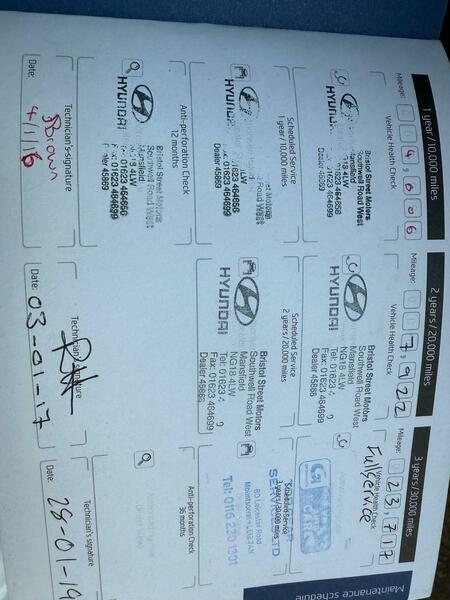 Maintenance schedule
1 year/10,000 miles
Mileage: 4,606
Vehicle Health Check
Bristol Street Motors
Southwell Road West
Mansfield
NG18 4LW
Tel: 01623 464656
Fax: 01623 464699
Dealer 45869
HYUNDAI
Scheduled Service
1 year/10,000 miles
Bristol Street Motors
Road West
4LW
01623 464656
01623 464699
Dealer 45869
HYUNDAI
Anti-perforation Check
12 months
Bristol Street Motors
Southwell Road West
Mansfield
4LW
01623 464656
01623 464699
Dealer 45869
HYUNDAI
Technician's signature
Brown
Date: 4/1/16
2 years/20,000 miles
Mileage: 7,922
Vehicle Health Check
Bristol Street Motors
Southwell Road West
Mansfield
NG18 4LW
Tel: 01623
Fax: 01623 464699
HYUNDAI
Scheduled Service
2 years/20,000 miles
Bristol Street Motors
Southwell Road West
Mansfield
NG18 4LW
Tel: 01623
Fax: 01623 464699
HYUNDAI
Technician's signature
Date: 03-01-17
3 years/30,000 miles
Mileage: 23,717
Vehicle Health Check
Full Service
CARS
Scheduled Service
3 years/30,000 miles
SERVICE LTD
80 Leicester Road
Mountsorrel
Tel: 0116 230 1301
Anti-perforation Check
36 months
Technician's signature